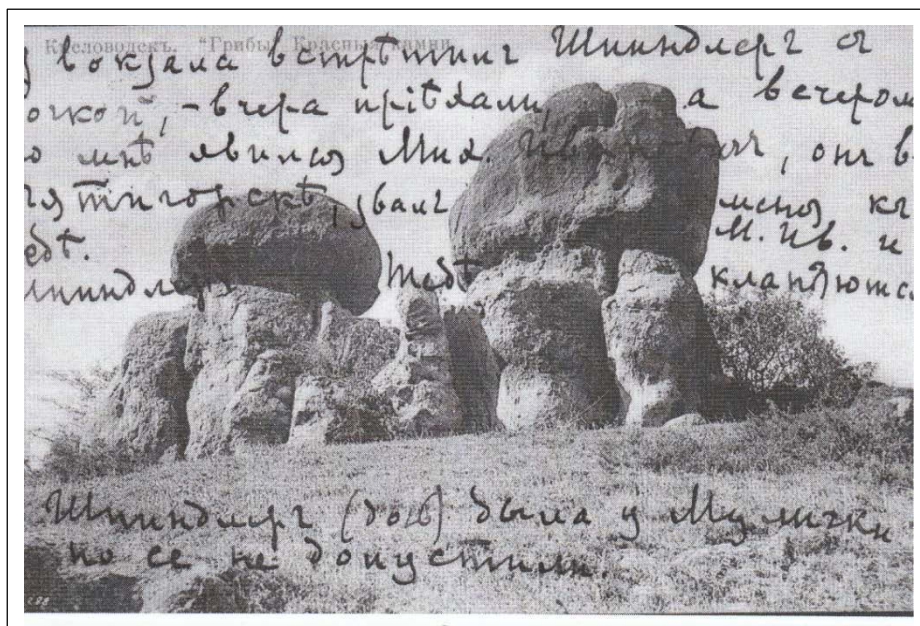 Кисловодскъ. "Грибы" Красные камни
вокзала встрѣтилъ Шпиндлеръ съ
очкой, - вчера пріѣхали, а вечеромъ
мнѣ явился Мих. Ивановичъ, онъ в
ятигорскѣ, звалъ меня къ
ебѣ. М. Ив. и
пиндлеръ тебѣ кланяются
Шпиндлеръ (дочь) была у Мулички
но ее не допустили.
№88